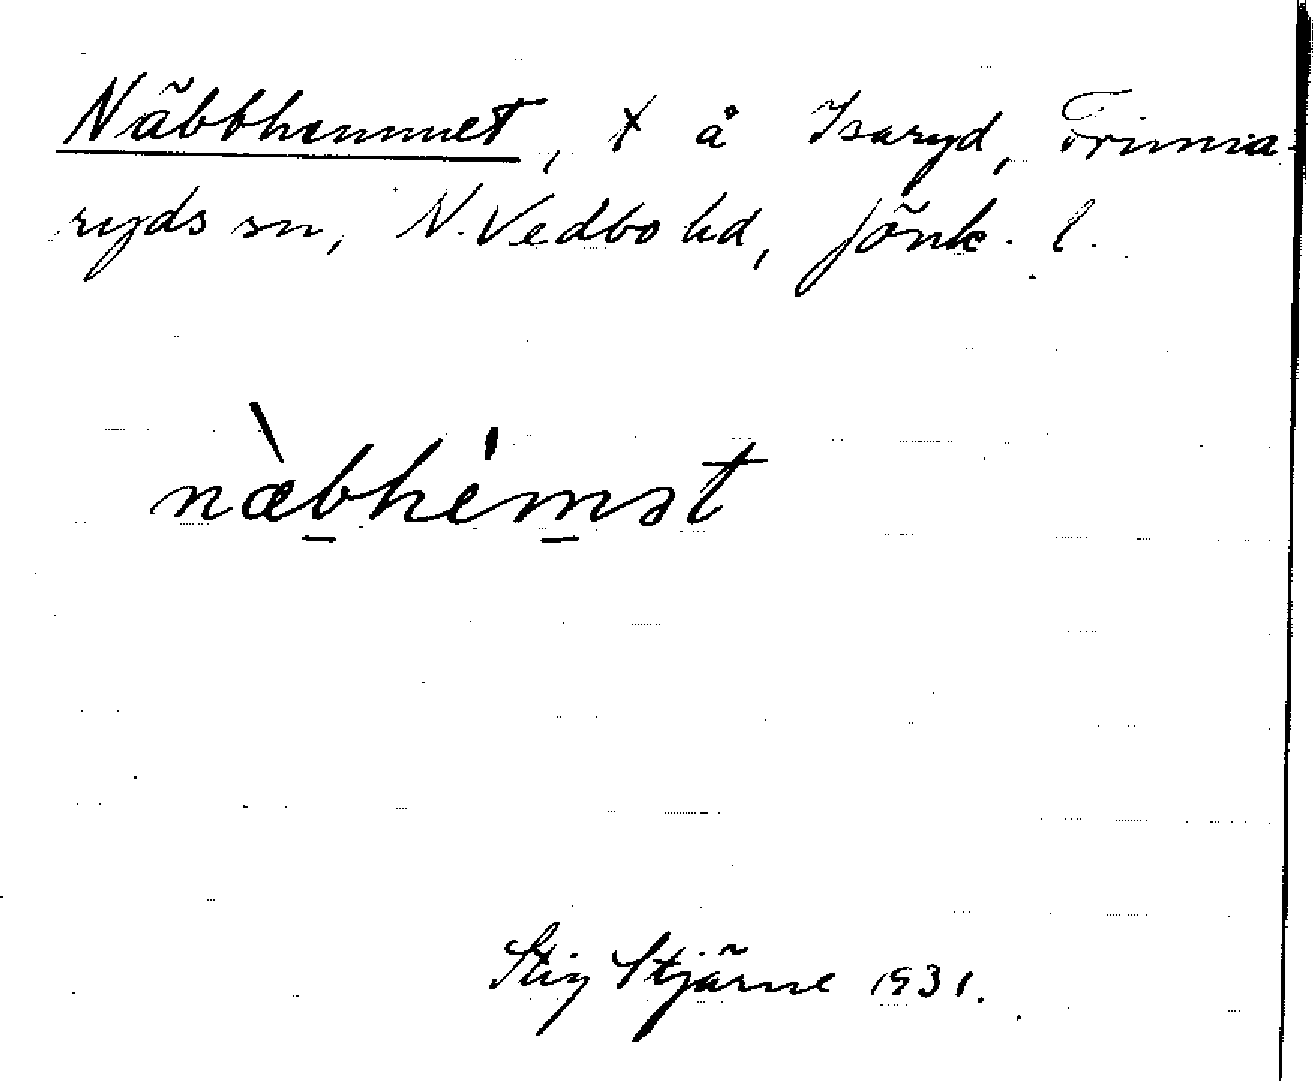 Näbbhemmet, † å Isaryd, Frinna-
ryds sn, N. Vedbo hd, Jönk. l.
næ̀bhémət
Stig Stjärne 1931.